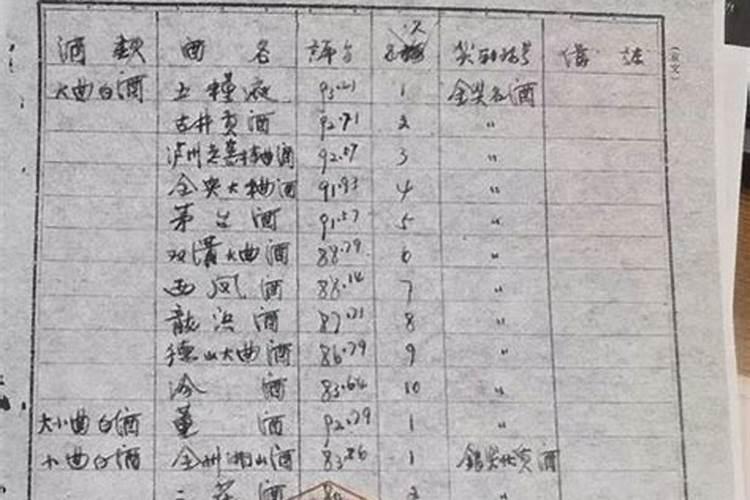 酒类 酒名 评分 名次 奖励称号 备注
大曲白酒 五糧液 93.21 1 金奖名酒
古井贡酒 92.71 2 〃
泸州老窖特曲酒 92.57 3 〃
全兴大曲酒 91.93 4 〃
茅台酒 91.57 5 〃
双溝大曲酒 88.79 6 〃
西凤酒 88.14 7 〃
龍浜酒 87.21 8 〃
德山大曲酒 86.79 9 〃
汾酒 83.64 10 〃
大小曲白酒 董酒 92.79 1 〃
小曲白酒 全州湘山酒 83.86 1 銀奖优质酒
三花酒 2 〃